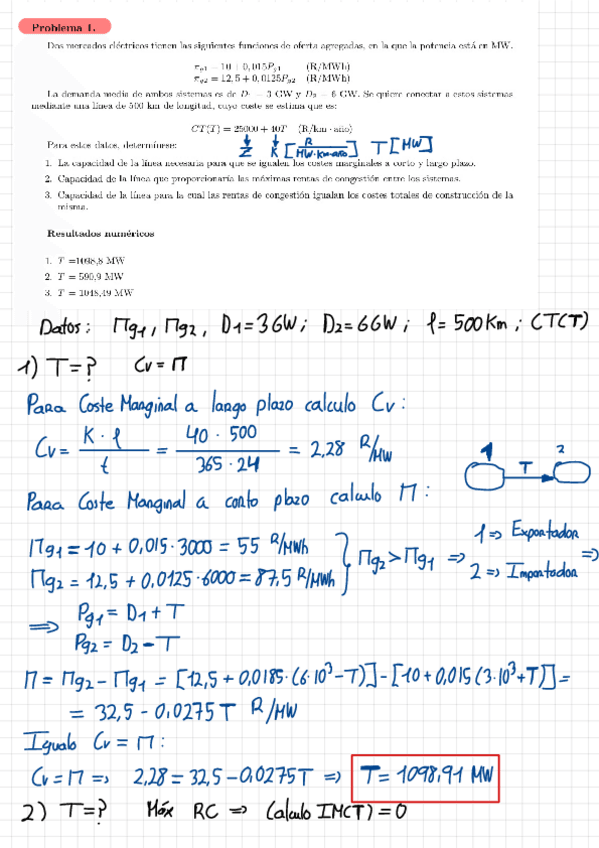 Problema 1.
Dos mercados eléctricos tienen las siguientes funciones de oferta agregadas, en la que la potencia está en MW.
πg1 = 10 + 0,015Pg1 (R/MWh)
πg2 = 12,5 + 0,0125Pg2 (R/MWh)
La demanda media de ambos sistemas es de D1 = 3 GW y D2 = 6 GW. Se quiere conectar a estos sistemas
mediante una línea de 500 km de longitud, cuyo coste se estima que es:
CT(T) = 25000 + 40T (R/km · año)
Z K [R/MW·Km·año] T[MW]
Para estos datos, determínese:
1. La capacidad de la línea necesaria para que se igualen los costes marginales a corto y largo plazo.
2. Capacidad de la línea que proporcionaría las máximas rentas de congestión entre los sistemas.
3. Capacidad de la línea para la cual las rentas de congestión igualan los costes totales de construcción de la
misma.
Resultados numéricos
1. T =1098,8 MW
2. T = 590,9 MW
3. T = 1048,49 MW
Datos: Πg1, Πg2, D1=3GW; D2=6GW; l=500Km; CT(T)
1) T=? Cv=Π
Para Coste Marginal a largo plazo calculo Cv:
Cv= K·l / t = 40·500 / 365·24 = 2,28 R/MW
1 T 2
Para Coste Marginal a corto plazo calculo Π:
Πg1=10+0,015·3000=55 R/MWh
Πg2=12,5+0,0125·6000=87,5 R/MWh
} Πg2>Πg1 ⇒ 1⇒ Exportador
2⇒ Importador ⇒
⇒ Pg1=D1+T
Pg2=D2-T
Π=Πg2-Πg1=[12,5+0,0185·(6·10³-T)]-[10+0,015(3·10³+T)]=
=32,5-0,0275T R/MW
Igualo Cv=Π:
Cv=Π⇒ 2,28=32,5-0,0275T ⇒ T=1098,91 MW
2) T=? Máx RC ⇒ Calculo IM(T)=0